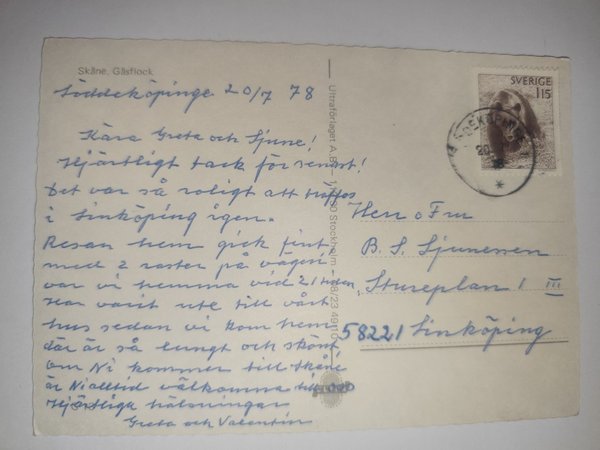 Skåne. Gåsflock
Löddeköpinge 20/7 78
Kära Greta och Sjune!
Hjärtligt tack för senast!
Det var så roligt att träffas
i Linköping igen.
Resan hem gick fint
med 2 raster på vägen
var vi hemma vid 21 tiden
har varit ute till vårt
hus sedan vi kom hem
där är så lungt och skönt
Om Ni kommer till Skåne
är Ni alltid välkomna till oss
Hjärtliga hälsningar
Greta och Valentin
Ultraförlaget A.B. Stockholm
SVERIGE
115
20
78
Herr o Fru
B. S. Sjunesson
Stureplan 1 III
58221 Linköping